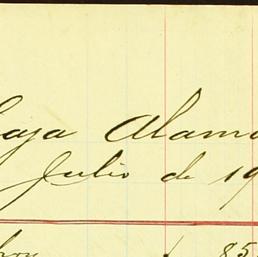 Caja Alam
Julio de 19
85